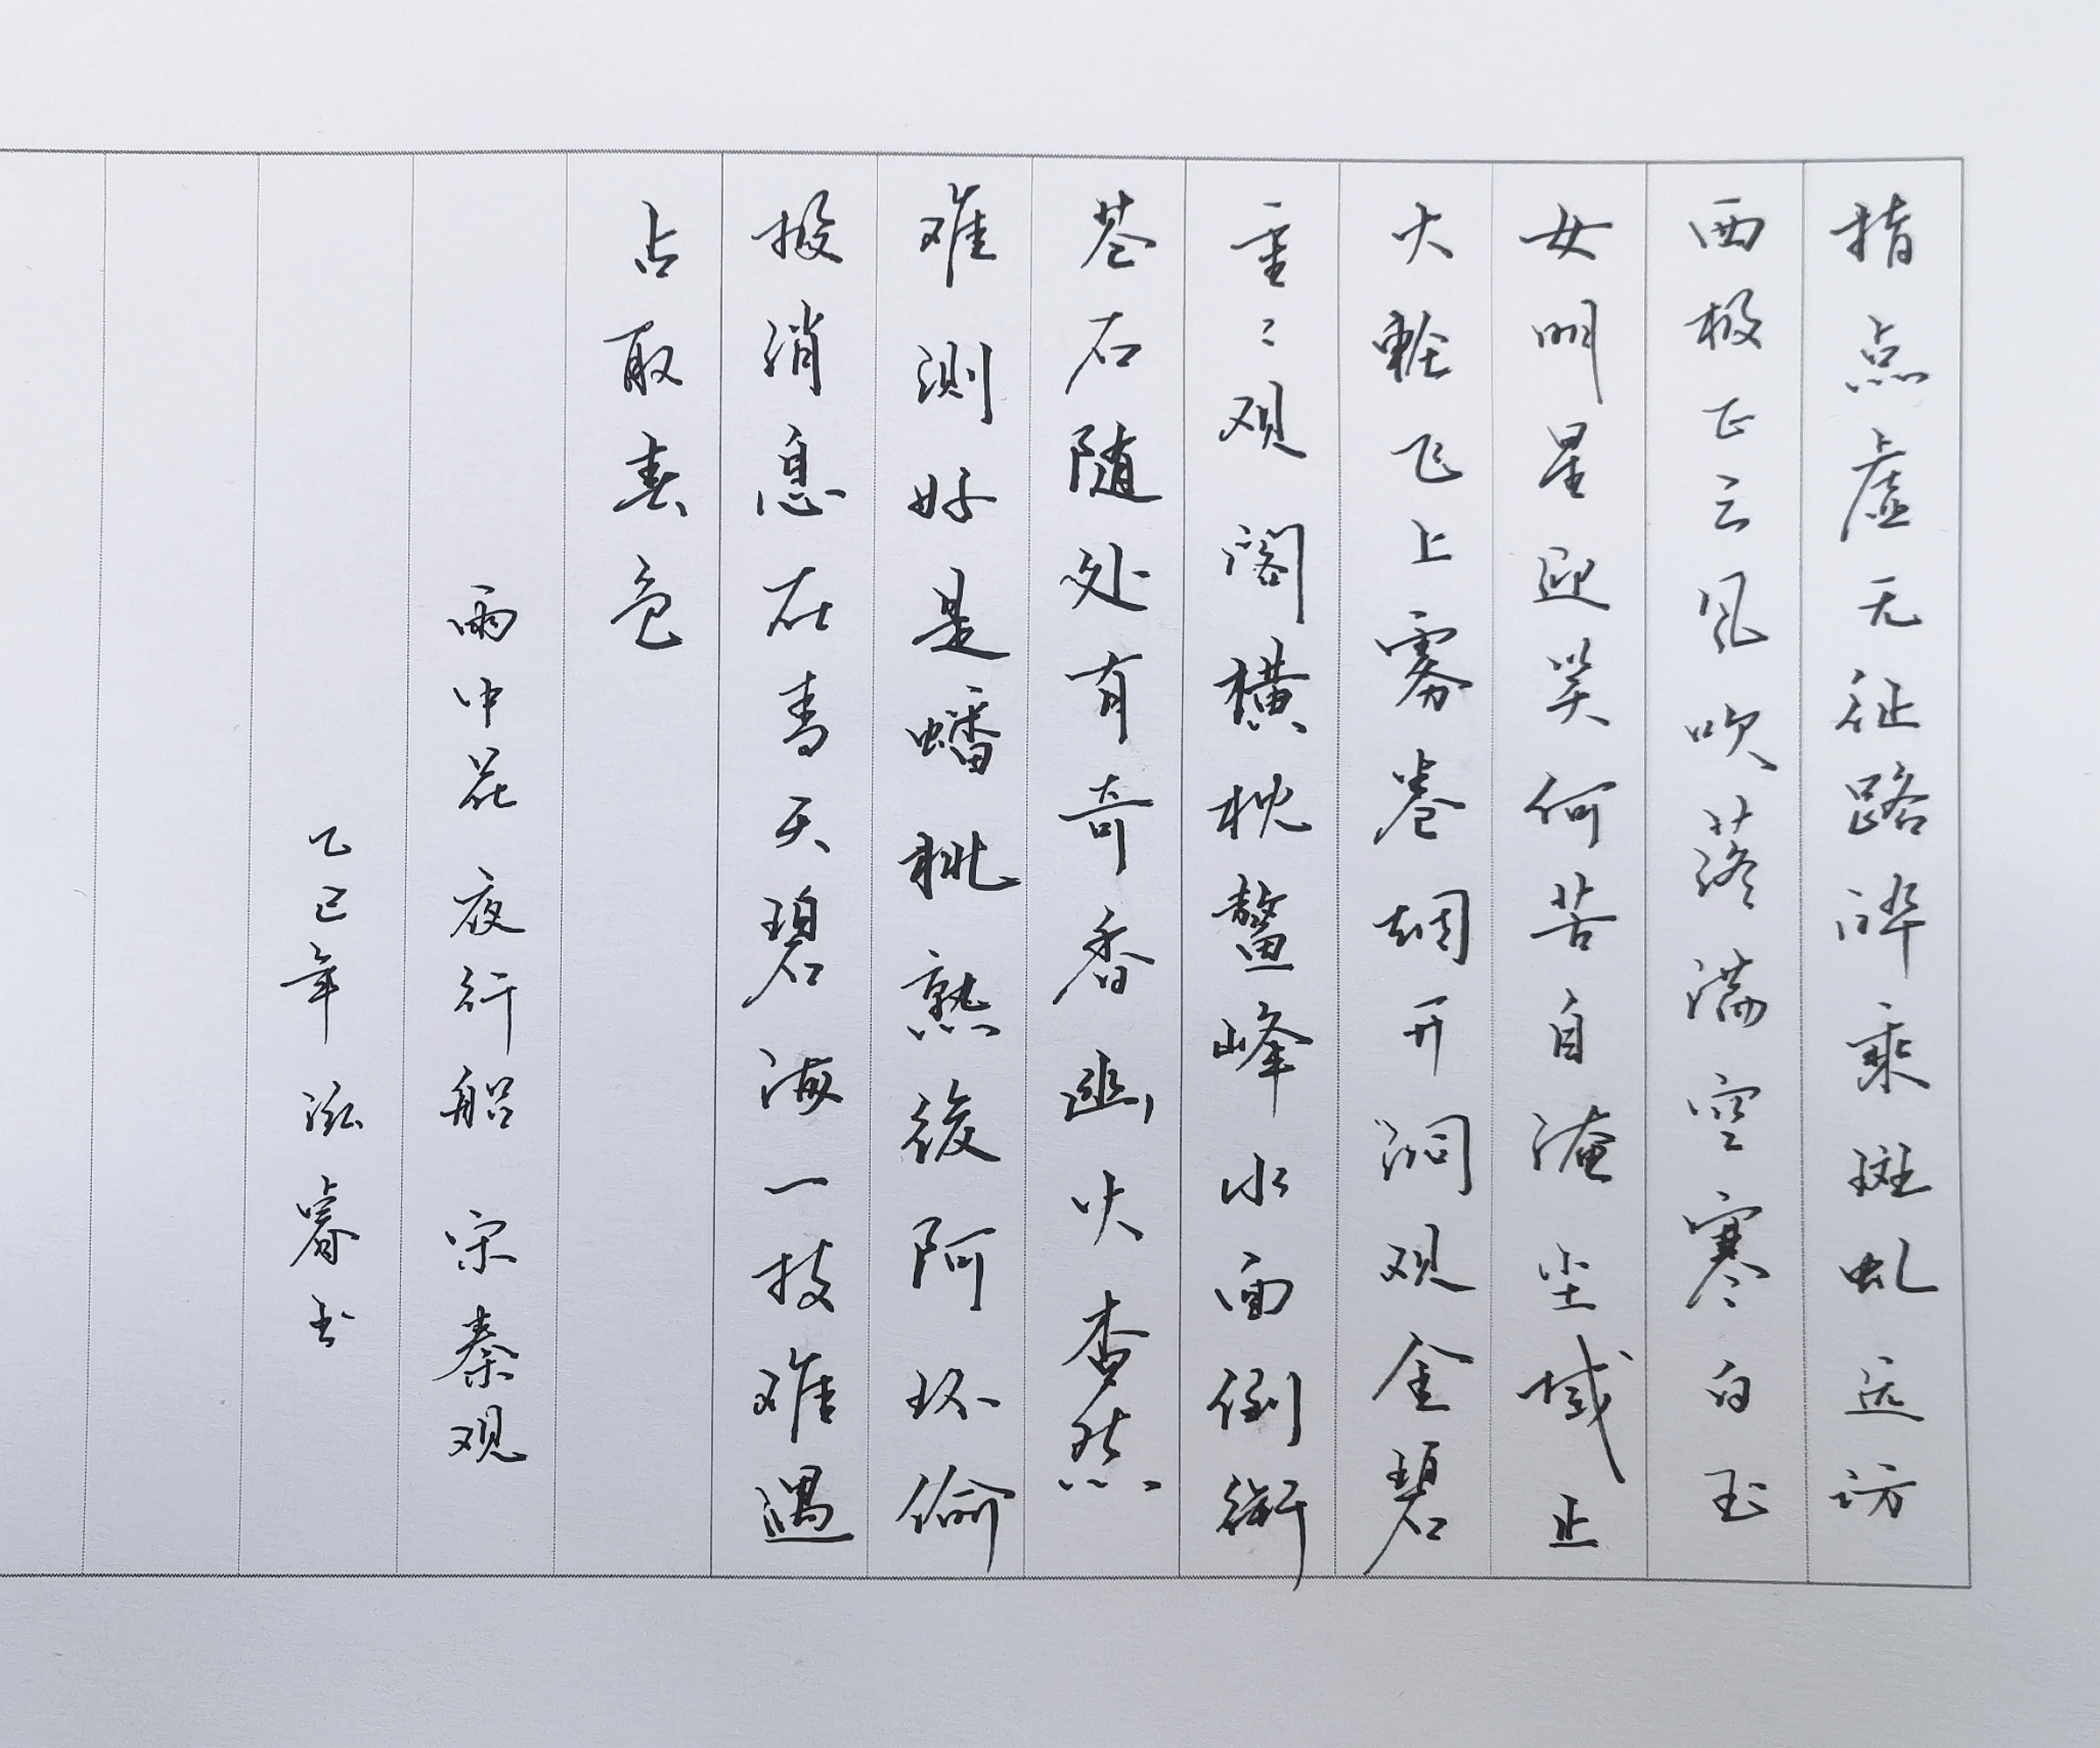 指点虚无征路醉乘斑虬远访
西极正云风吹落满空寒白玉
女明星迎笑何苦自淹尘域正
火轮飞上雾卷烟开洞观金碧
重〻观阁横枕鳌峰水面倒衔
苍石随处有奇香幽火杳然
难测好是蟠桃熟後阿环偷
报消息在青天碧海一枝难遇
占取春色
雨中花 夜行船 宋秦观
乙巳年 泓睿书